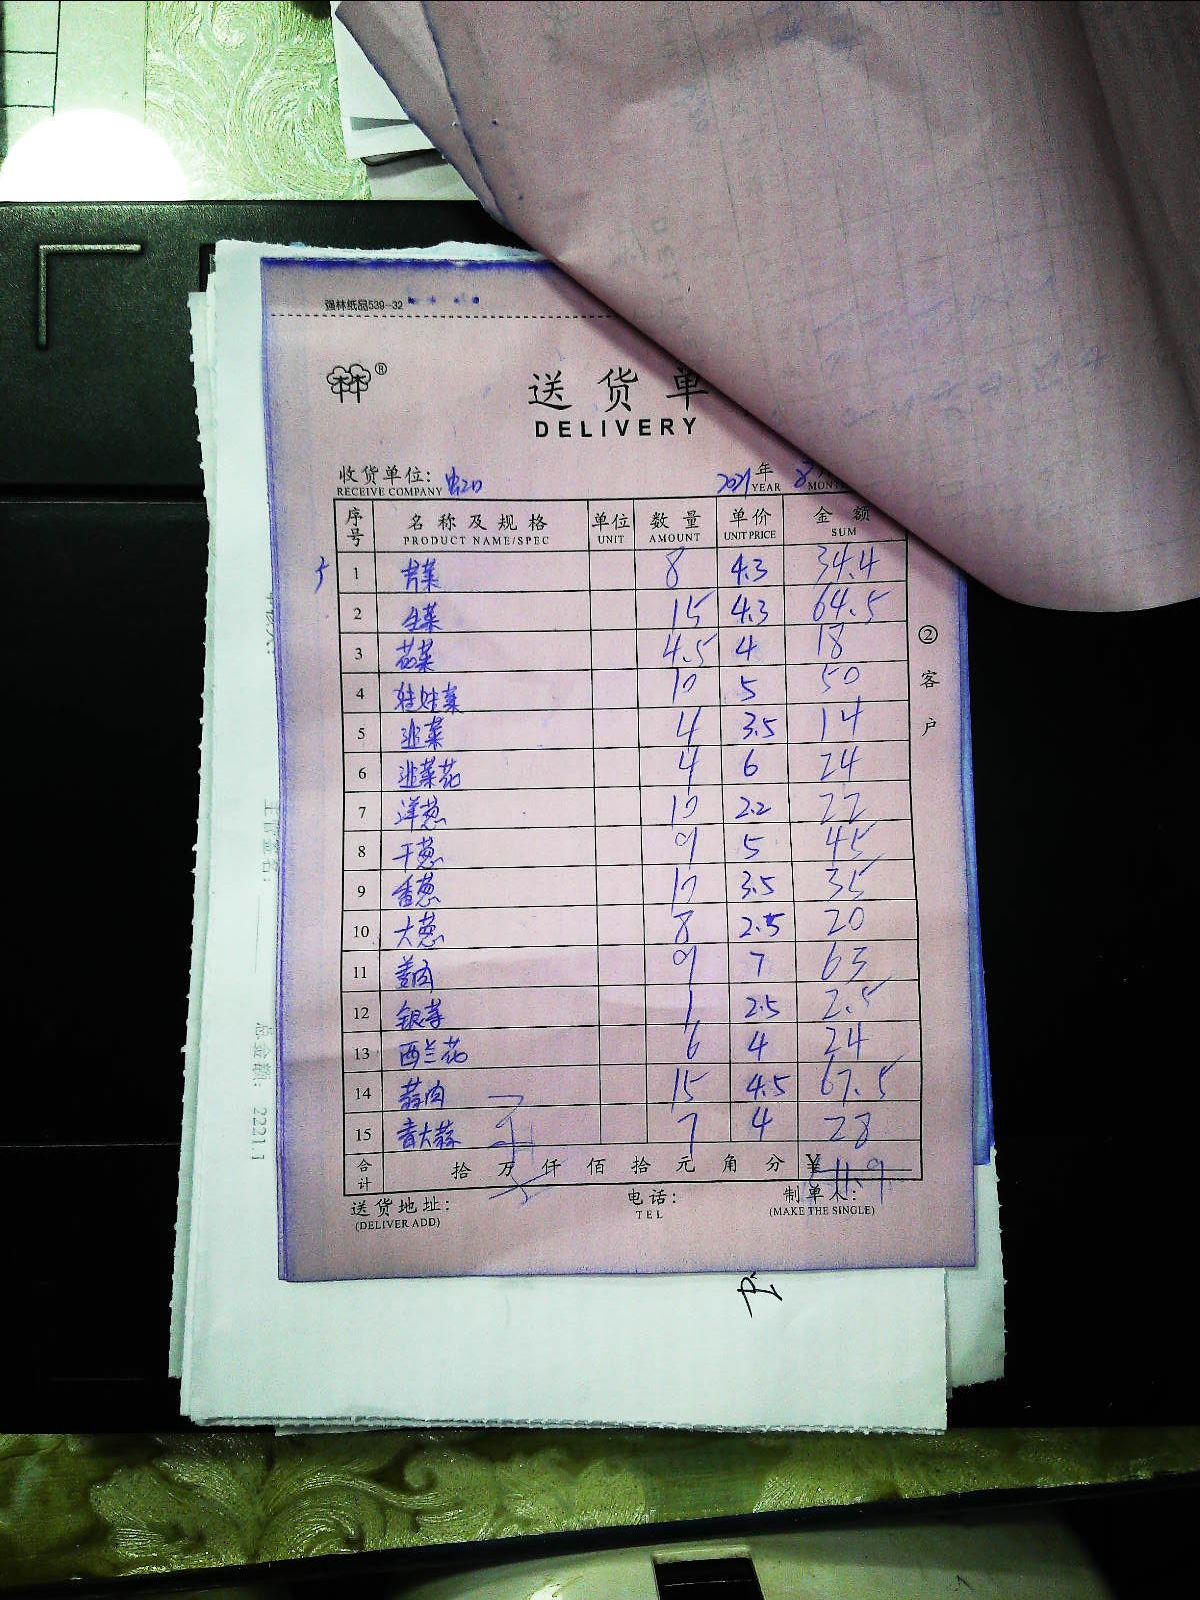 强林纸品539-32
林林®
送货单
DELIVERY
收货单位:
RECEIVE COMPANY
2021年 8
YEAR MONT
序号 名称及规格 单位 数量 单价 金额
PRODUCT NAME/SPEC UNIT AMOUNT UNIT PRICE SUM
1 青菜 8 4.3 34.4
2 生菜 15 4.3 64.5
3 花菜 4.5 4 18
4 娃娃菜 10 5 50
5 韭菜 4 3.5 14
6 韭菜花 4 6 24
7 洋葱 10 2.2 22
8 干葱 9 5 45
9 香葱 10 3.5 35
10 大葱 8 2.5 20
11 姜肉 9 7 63
12 银芽 1 2.5 2.5
13 西兰花 6 4 24
14 蒜肉 15 4.5 67.5
15 青大蒜 7 4 28
合计 拾 万 仟 佰 拾 元 角 分 ¥ 511.9
送货地址: 电话: 制单人:
(DELIVER ADD) TEL (MAKE THE SINGLE)
②客户
总金额: 2221.1